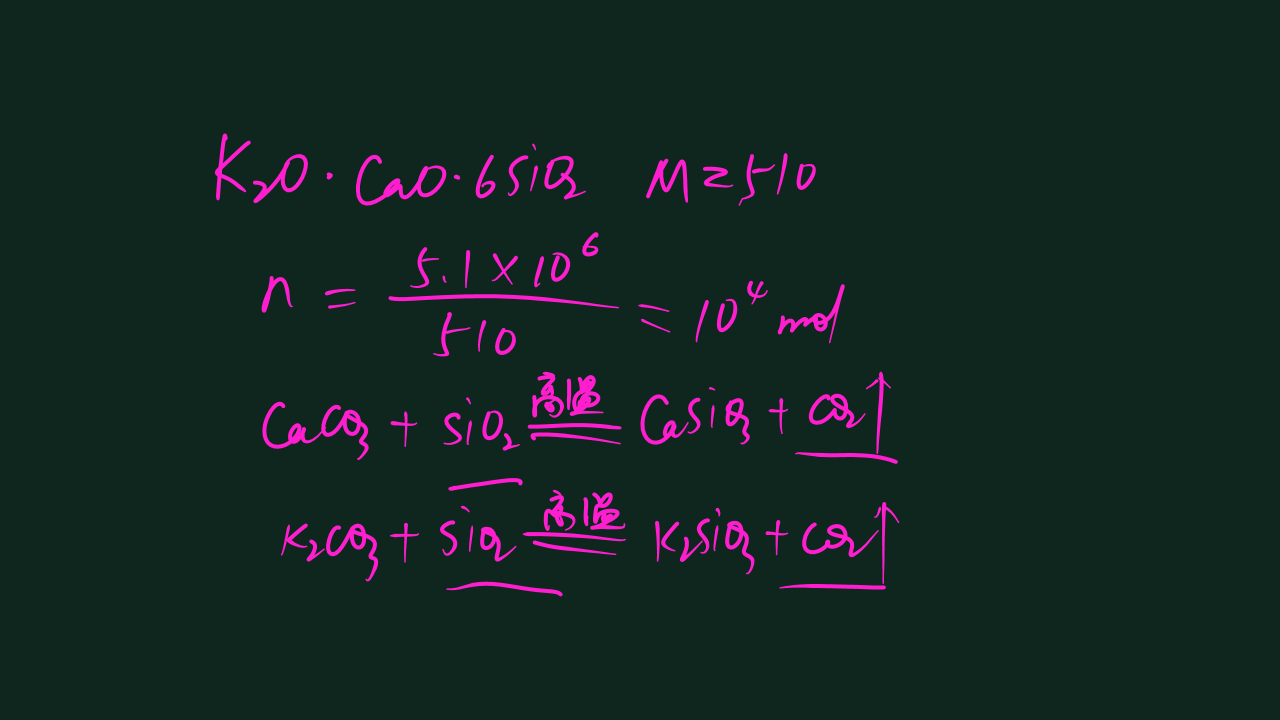 K₂O·CaO·6SiO₂ M=510
n = 5.1×10⁶ / 510 = 10⁴ mol
CaCO₃ + SiO₂ 高温 == CaSiO₃ + CO₂↑
K₂CO₃ + SiO₂ 高温 == K₂SiO₃ + CO₂↑